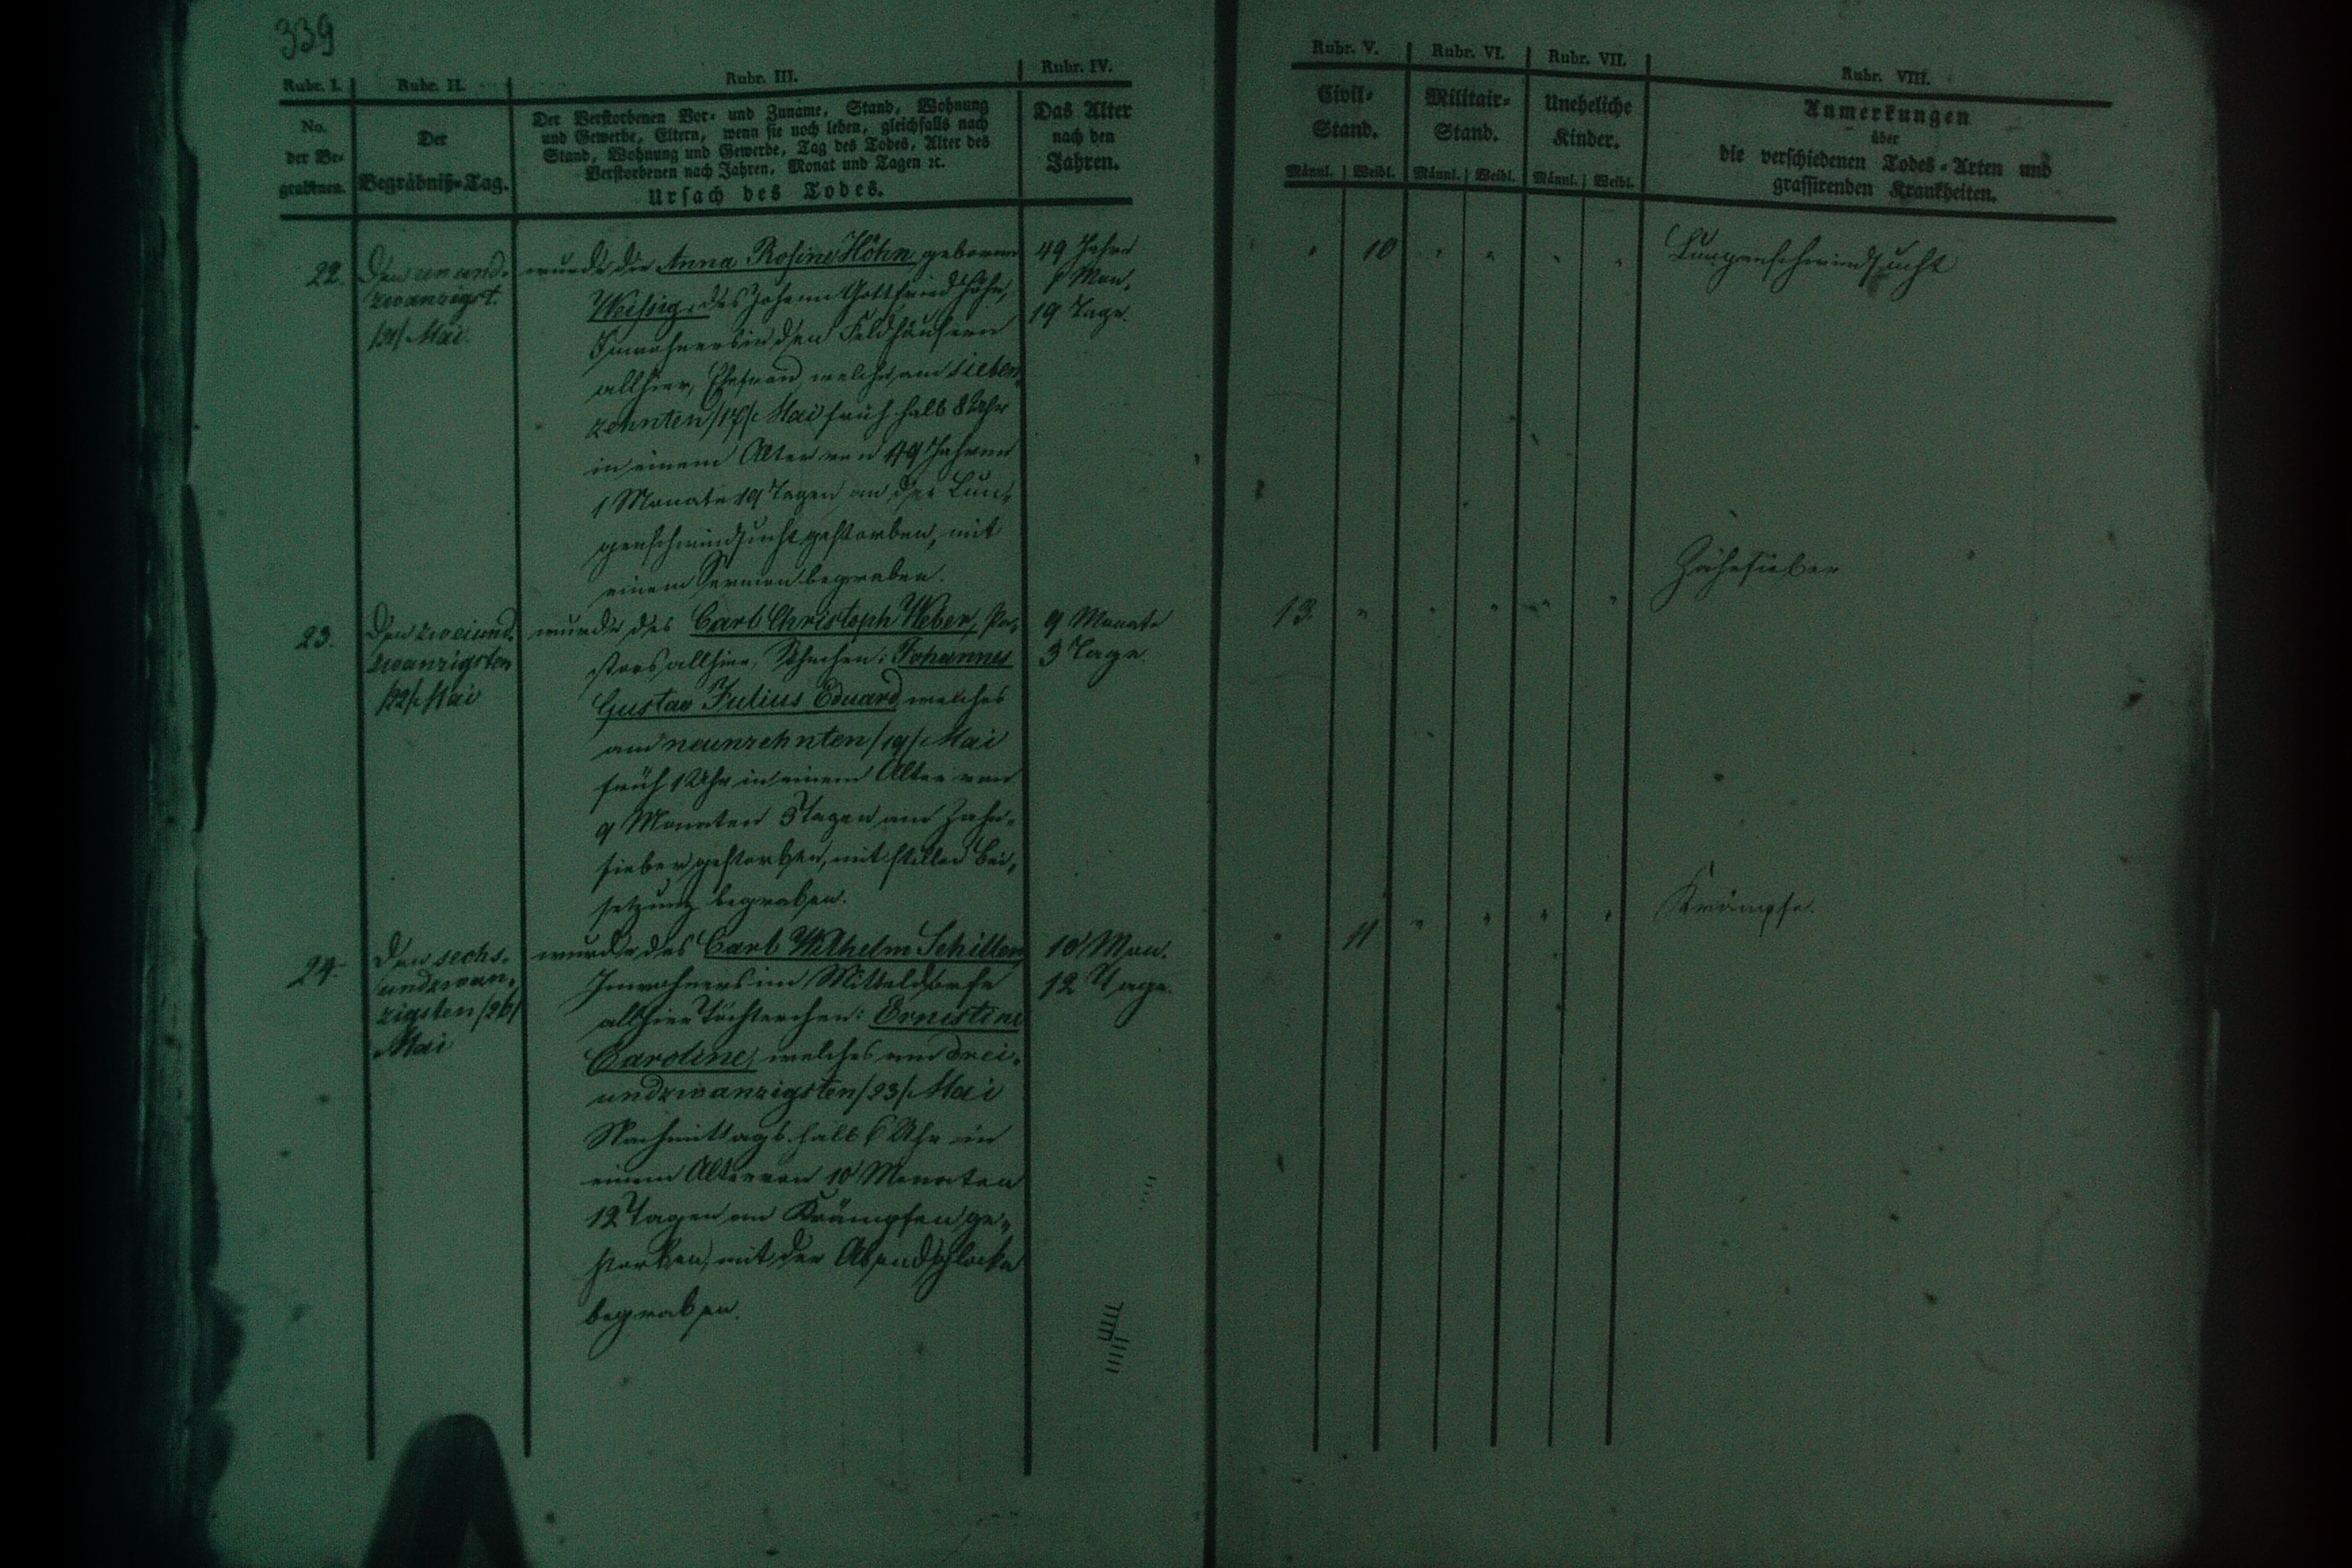 339
Rubr. I.
Rubr. II.
Rubr. III.
Rubr. IV.
No.
der Be-
grabnen.
Der
Begräbniß-Tag.
Der Verstorbenen Vor- und Zuname, Stand, Wohnung
und Gewerbe, Eltern, wenn sie noch leben, gleichfalls nach
Stand, Wohnung und Gewerbe, Tag des Todes, Alter des
Verstorbenen nach Jahren, Monat und Tagen ꝛc.
Ursach des Todes.
Das Alter
nach den
Jahren.
22.
Den ein und-
zwanzigst.
/21/ Mai.
wurde die Anna Rosine Höhn, geborene
Weissig, des Johann Gottfried Höhn,
Inwohners in den Feldhäusern
allhier, Ehefrau, welche am sieben-
zehnten /17/ Mai früh halb 8 Uhr
in einem Alter von 49 Jahren
1 Monate 19 Tagen an der Lun-
genschwindsucht gestorben, mit
einem Sermon begraben.
49 Jahre
1 Mon.
19 Tage.
23.
Den zweiund-
zwanzigsten
/22/ Mai
wurde des Carl Christoph Weber, Pa-
stors allhier, Söhnchen: Johannes
Gustav Julius Eduard, welches
am neunzehnten /19/ Mai
früh 1 Uhr in einem Alter von
9 Monaten 3 Tagen am Zahn-
fieber gestorben, mit stiller Bei-
setzung begraben.
9 Monate
3 Tage.
24.
Den sechs-
undzwan-
zigsten /26/
Mai
wurde des Carl Wilhelm Schiller,
Inwohners im Mitteldorfe
allhier Töchterchen: Ernestine
Caroline, welches am drei-
undzwanzigsten /23/ Mai
Nachmittags halb 6 Uhr in
einem Alter von 10 Monaten
12 Tagen an Krämpfen ge-
storben, mit der Abendglocke
begraben.
10 Mon.
12 Tage.
Rubr. V.
Rubr. VI.
Rubr. VII.
Rubr. VIII.
Civil-
Stand.
Militair-
Stand.
Uneheliche
Kinder.
Männl. Weibl.
Männl. Weibl.
Männl. Weibl.
Anmerkungen
über
die verschiedenen Todes-Arten und
grassirenden Krankheiten.
" 10 " " " " Lungenschwindsucht
13. " " " " " Zahnfieber
" 11 " " " " Krämpfe.